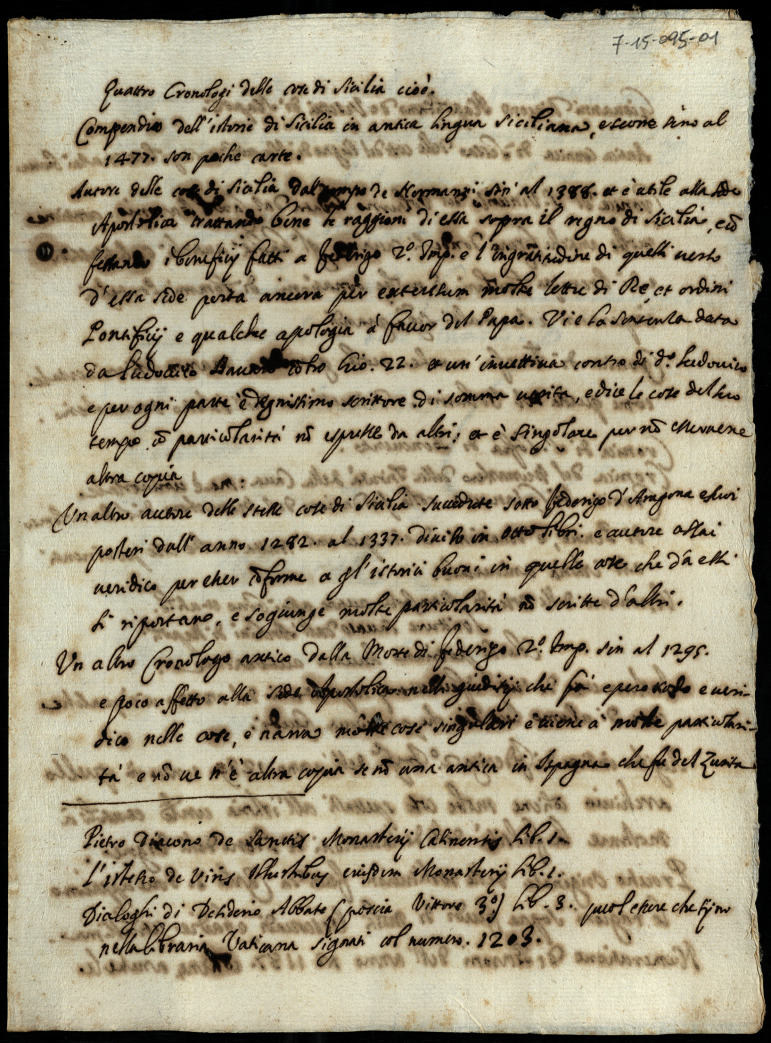 7-15-095-01
Quattro Cronologi delle cose di Sicilia cioè.
Compendio dell'istorie di Sicilia in antica lingua siciliana, e scorre sino al
1477. son poche carte.
Autore delle cose di Sicilia dal tempo de Normanni sin' al 1388. et è utile alla sede
Apostolica trattando bene le raggioni di essa sopra il regno di Sicilia, e cõ
i beneficij fatti a federigo 2º. Imp. e l'ingratitudine di quelli verso
d'essa sede porta ancora per extensum molte lettre di Re, et ordini
Pontificij e qualche apologia à favor del Papa. Vi e la sentenza data
da Ludovico Bavaro cõtro Gio. 22. et un' invettiva contro di dº. Ludovico
e per ogni parte è dignissimo scrittore di somma verita, e dice le cose del suo
tempo cõ particolarità nõ espresse da altri, et è singolare per nõ essersene
altra copia
Un altro autore delle stesse cose di Sicilia succedute sotto federigo d'Aragona e suoi
posteri dall' anno 1282. al 1337. diviso in otto libri. e autore assai
veridico per esser cõforme a gl'istorici buoni in quelle cose che da essi
si riportano, e sogiunge molte particolarità nõ scritte d'altri.
Un altro Cronologo antico dalla Morte di federigo 2º. Imp. sin al 1295.
e poco affetto alla sede Apostolica nelli giuditij che fà e pero sodo e veri-
dico nelle cose, e narra molte cose singulari e viene à molte particolari-
tà e nõ ve n'è altra copia se nõ una antica in Spagna che fu del Zurita
Pietro Diacono de Sanctis Monasterij Casinensis lib. 1.
L'istesso de Viris Illustribus eiusdem Monasterij lib. 1.
Dialoghi di Desiderio Abbate (poscia Vittore 3º) lib. 3. puol essere che sijno
nella libraria Vaticana signati col numero. 1203.